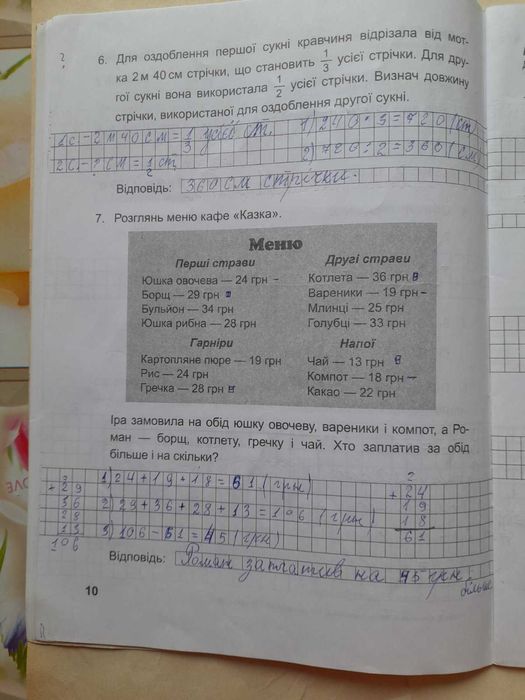 ?
6. Для оздоблення першої сукні кравчиня відрізала від мот-
ка 2 м 40 см стрічки, що становить 1/3 усієї стрічки. Для дру-
гої сукні вона використала 1/2 усієї стрічки. Визнач довжину
стрічки, використаної для оздоблення другої сукні.
1 с. – 2 м 40 см = 1/3 усієї ст. 1) 240 · 3 = 720 (см)
2 с. – ? см = 1/2 ст. 2) 720 : 2 = 360 (см)
Відповідь: 360 см стрічки.
7. Розглянь меню кафе «Казка».
Меню
Перші страви Другі страви
Юшка овочева — 24 грн – Котлета — 36 грн в
Борщ — 29 грн Вареники — 19 грн –
Бульйон — 34 грн Млинці — 25 грн
Юшка рибна — 28 грн Голубці — 33 грн
Гарніри Напої
Картопляне пюре — 19 грн Чай — 13 грн в
Рис — 24 грн Компот — 18 грн –
Гречка — 28 грн Какао — 22 грн
Іра замовила на обід юшку овочеву, вареники і компот, а Ро-
ман — борщ, котлету, гречку і чай. Хто заплатив за обід
більше і на скільки?
2 1) 24 + 19 + 18 = 61 (грн) 2
+ 29 + 24
36 2) 29 + 36 + 28 + 13 = 106 (грн) 19
28 18
13 3) 106 – 61 = 45 (грн) 61
106
Відповідь: Роман заплатив на 45 грн
більше
10